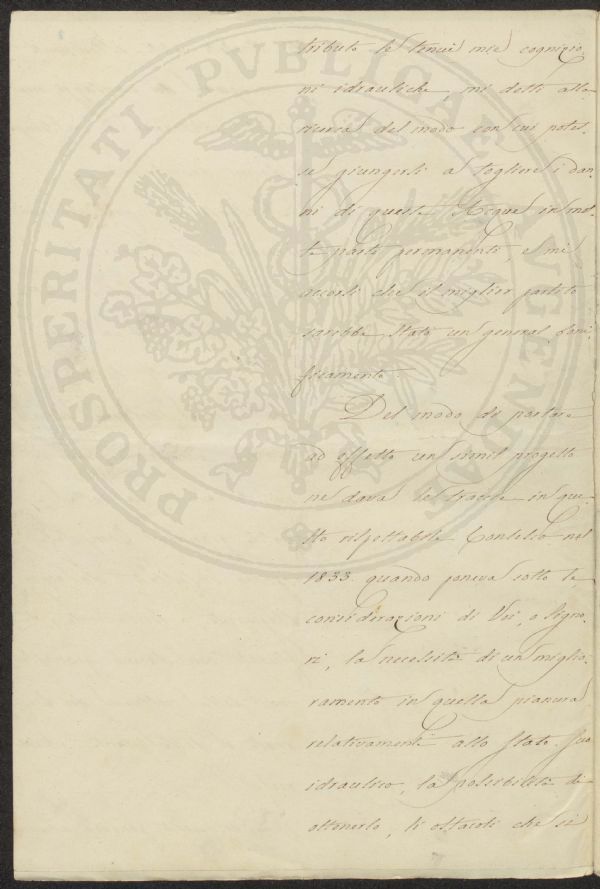 PROSPERITATI PVBLICAE AVGENDAE
tributo le tenui mie cognizio
ni idrauliche mi detti alla
ricerca del modo con cui potes-
se giungersi a togliere i dan-
ni di queste Acque in mol-
te parti permanenti, e mi
accorsi che il miglior partito
sarebbe stato un general boni-
ficamento.
Del modo di portare
ad effetto un simil progetto
ne dava le traccie in que-
sto rispettabile Consesso nel
1833. quando poneva sotto le
considerazioni di Voi, o Signo-
ri, la necessità di un miglio-
ramento in quella pianura
relativamente allo stato suo
idraulico, la possibilità di
ottenerlo, li ostacoli che si